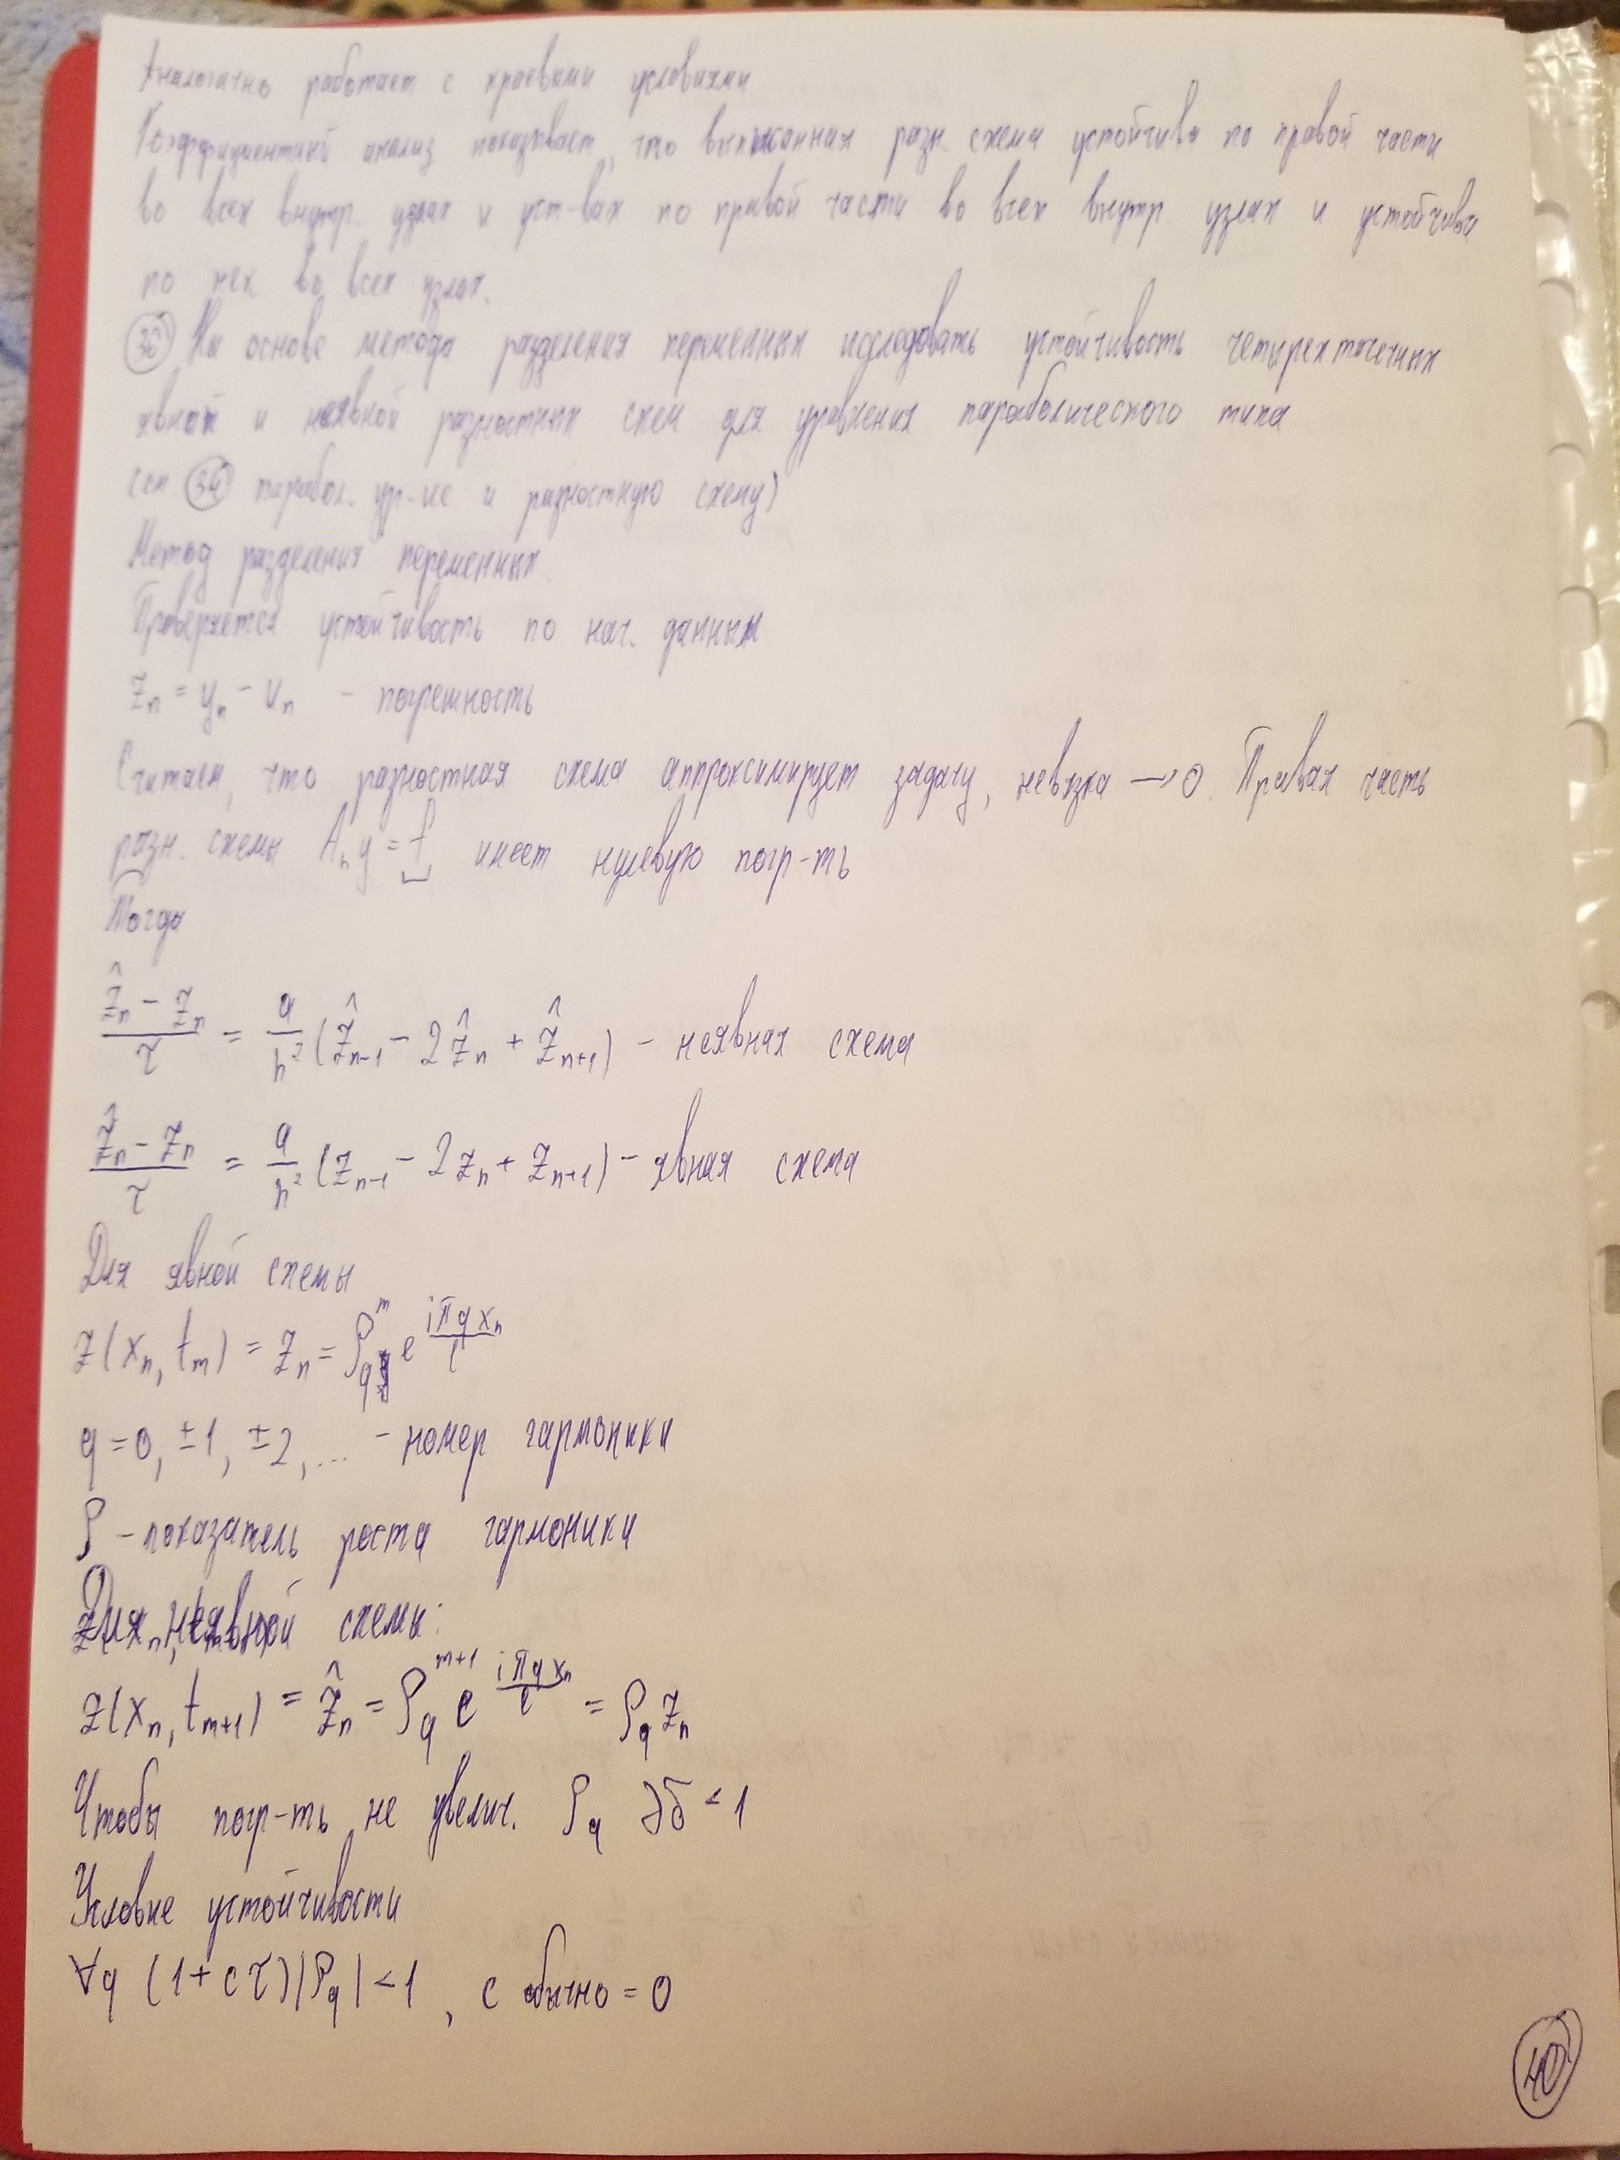 Аналогично работает с краевыми условиями
Коэффициентный анализ показывает, что выписанная разн. схема устойчива по правой части
во всех внутр. узлах и уст-вах по правой части во всех внутр узлах и устойчива
по нех во всех узлах.
36 На основе метода разделения переменных исследовать устойчивость четырехточечных
явной и неявной разностных схем для уравнения параболического типа
(см 34 парабол. ур-ие и разностную схему)
Метод разделения переменных.
Проверяется устойчивость по нач. данным
z_n = y_n - u_n - погрешность
Считаем, что разностная схема аппроксимирует задачу, невязка → 0. Правая часть
разн. схемы A_h y = f имеет нулевую погр-ть
Тогда
(ẑ_n - z_n)/τ = a/h² (ẑ_{n-1} - 2ẑ_n + ẑ_{n+1}) - неявная схема
(ẑ_n - z_n)/τ = a/h² (z_{n-1} - 2z_n + z_{n+1}) - явная схема
Для явной схемы
z(x_n, t_m) = z_n = ρ_q^m e^{iπqx_n/l}
q = 0, ±1, ±2, ... - номер гармоники
ρ - показатель роста гармоники
Для неявной схемы:
z(x_n, t_{m+1}) = ẑ_n = ρ_q^{m+1} e^{iπqx_n/l} = ρ_q z_n
Чтобы погр-ть не увелич. ρ_q дб < 1
Условие устойчивости
∀q (1 + cτ)|ρ_q| < 1, c обычно = 0
40